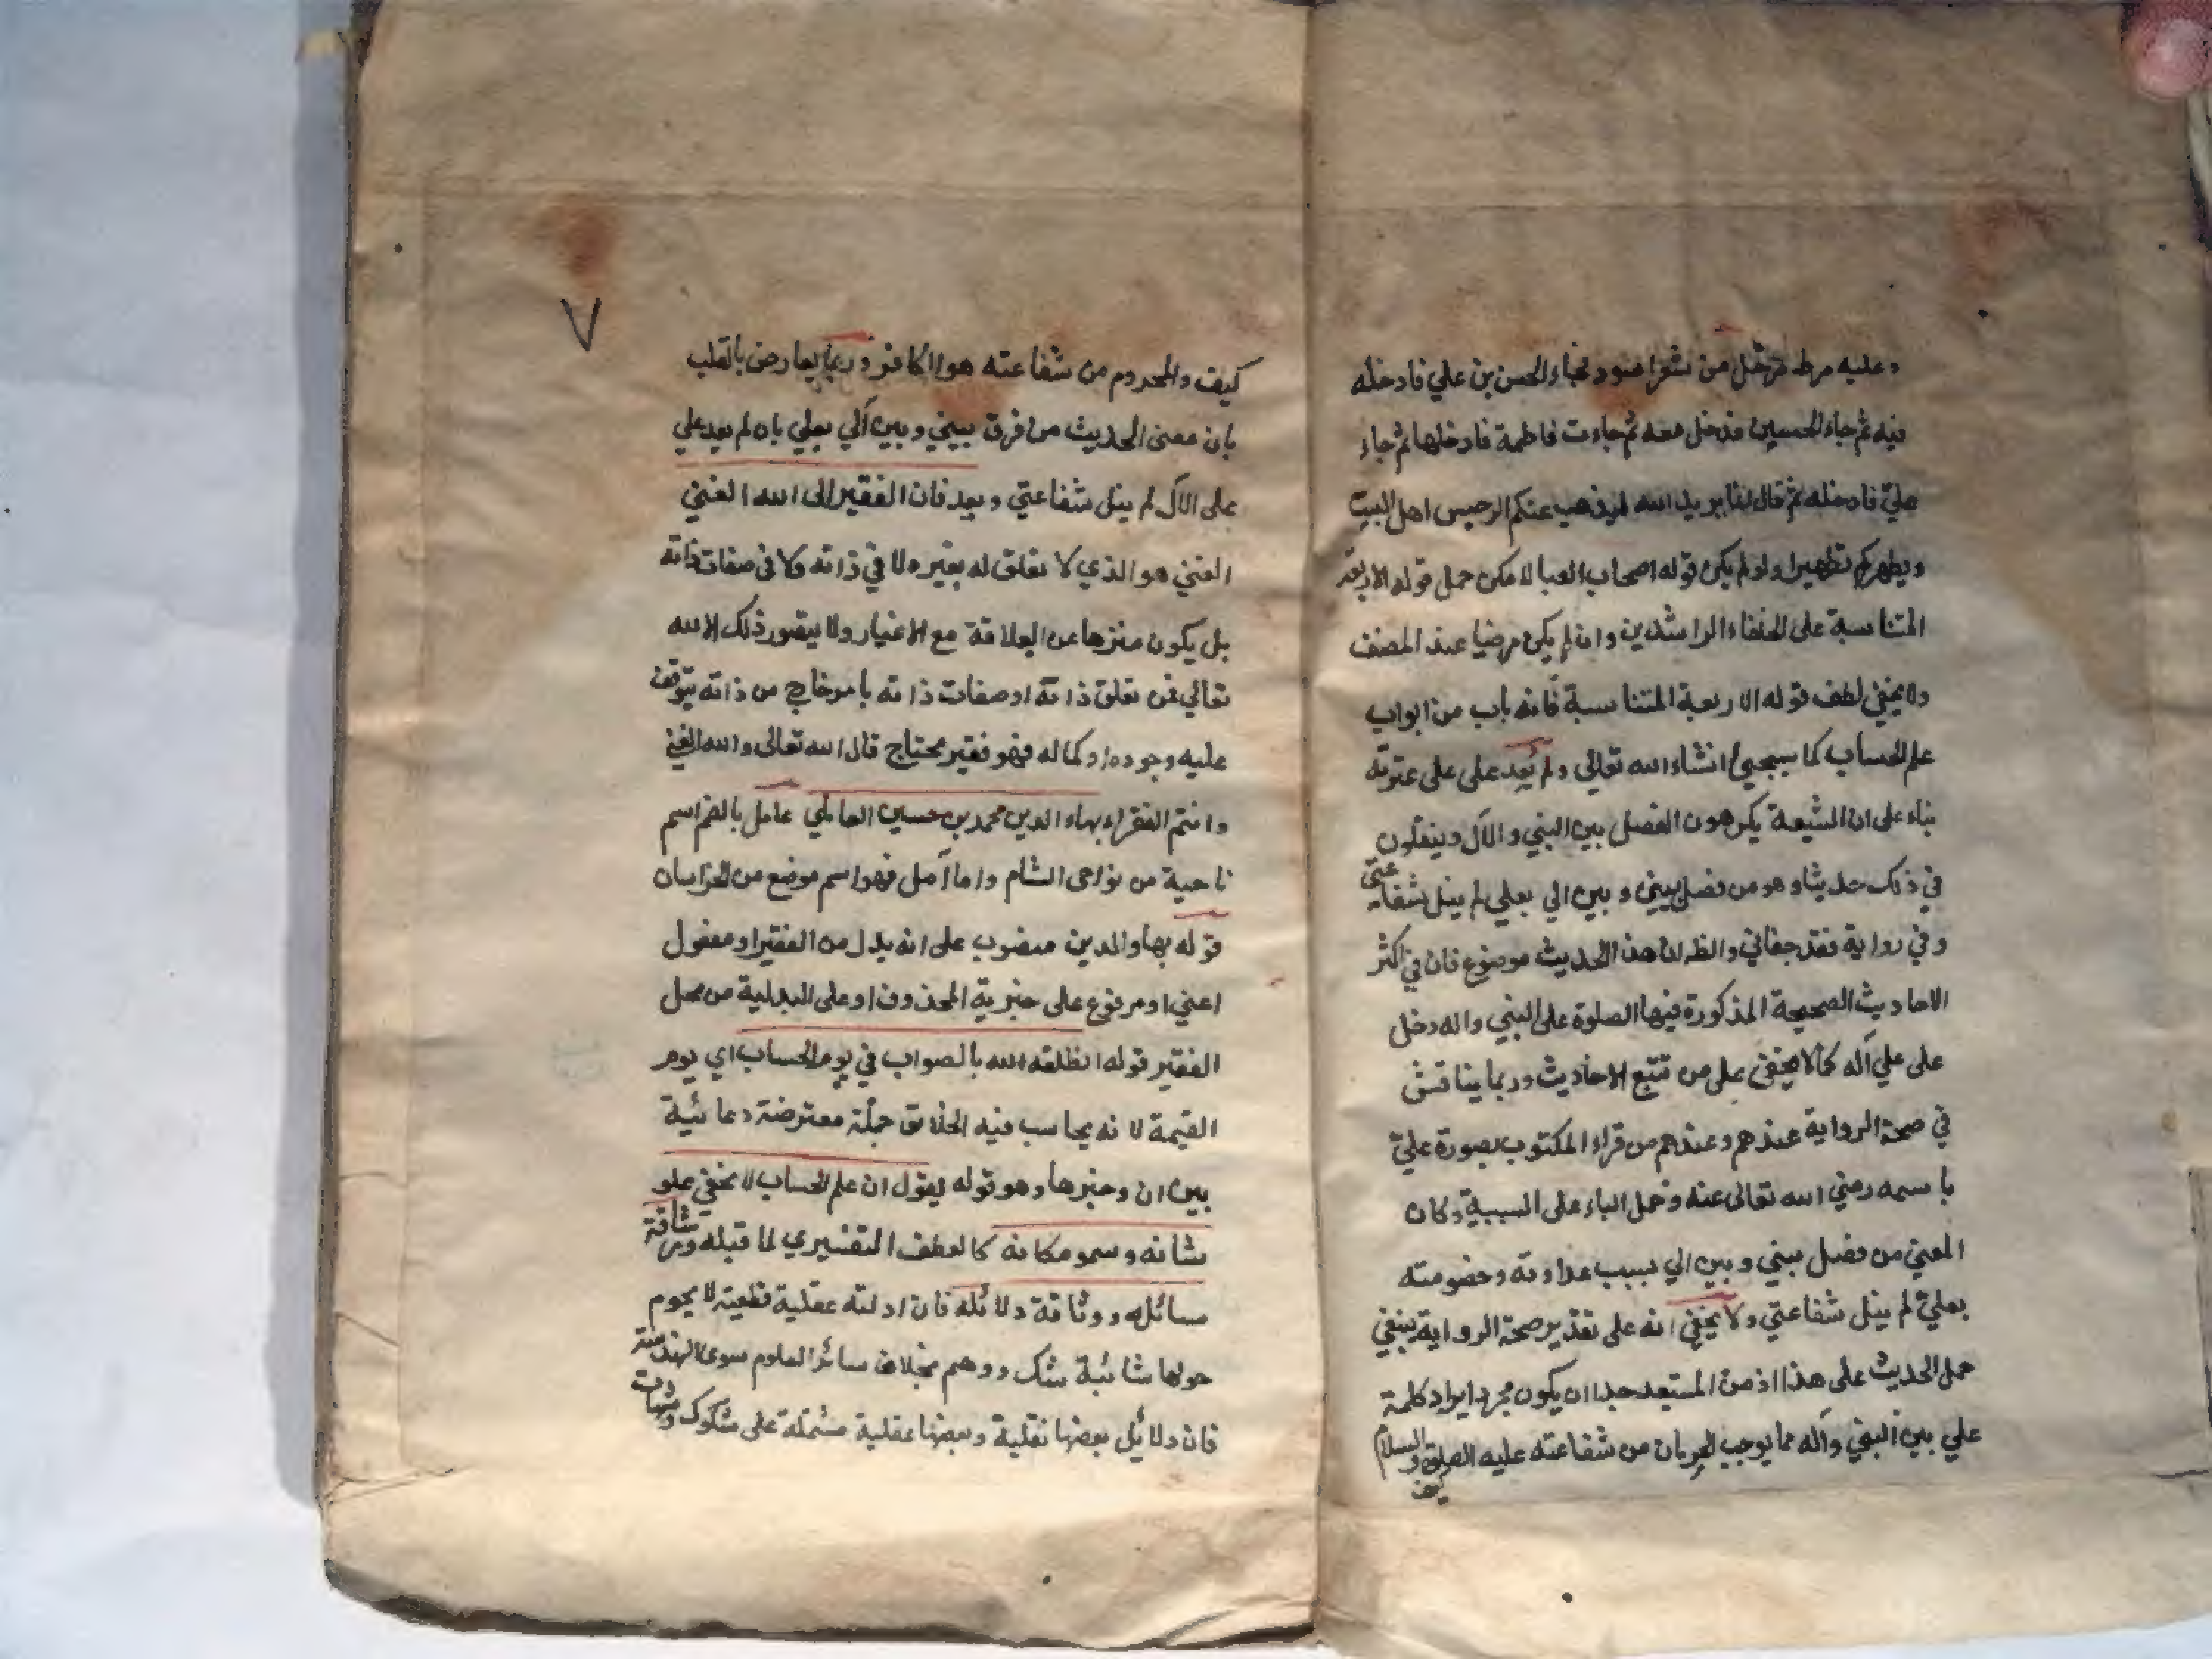 وعليه مرط مرحل من شعر اسود فجاء الحسن بن علي فادخله
فيه ثم جاء الحسين فدخل معه ثم جاءت فاطمة فادخلها ثم جاء
علي فادخله ثم قال انما يريد الله ليذهب عنكم الرجس اهل البيت
ويطهركم تطهيرا ولو لم يكن قوله اصحاب العبا لامكن حمل قوله الاربعة
المتناسبة على الخلفاء الراشدين وان لم يكن مرضيا عند المصنف
ولا يخفي لطف قوله الاربعة المتناسبة فانه باب من ابواب
علم الحساب كما سيجيئ انشاء الله تعالي ولم يعد على على عترته
بناء على ان الشيعة يكرهون الفصل بين النبي والآل وينقلون
في ذلك حديثا وهو من فصل بيني وبين الي بعلي لم ينل شفاعتى
وفي رواية فقد جفاني والظ ان هذا الحديث موضوع فان في اكثر
الاحاديث الصحيحة المذكورة فيها الصلوة على النبي واله دخل
على علي آله كما لا يخفي على من تتبع الاحاديث وربما يناقش
في صحة الرواية عندهم وعندهم من قراء المكتوب بصورة علي
باسمه رضي الله تعالى عنه وحمل الباء على السببية وكان
المعني من فصل بيني وبين الي بسبب عداوته وخصومته
بعلي لم ينل شفاعتي ولا يخفي انه على تقدير صحة الرواية ينبغي
حمل الحديث على هذا اذ من المستبعد جدا ان يكون مجرد ايراد كلمة
علي بين النبي وآله مما يوجب الحرمان من شفاعته عليه الصلوة والسلام
كيف
٧
كيف والمحروم من شفاعته هو الكافر وربما يعارض بالقلب
بان معنى الحديث من فرق بيني وبين آلي بعلي بان لم يعد علي
على الآل لم ينل شفاعتي وبعد فان الفقير الى الله الغني
الغني هو الذي لا تعلق له بغيره لا في ذاته ولا في صفات ذاته
بل يكون منزها عن العلاقة مع الاغيار ولا يتصور ذلك الا لله
تعالي فمن تعلق ذاته او صفات ذاته بامر خارج من ذاته يتوقف
عليه وجوده او كماله فهو فقير محتاج قال الله تعالى والله الغني
وانتم الفقراء بهاء الدين محمد بن حسين العاملي عامل بالضم اسم
ناحية من نواحى الشام واما آمل فهو اسم موضع من الخراسان
قوله بهاء الدين منصوب على انه بدل من الفقير او مفعول
اعني او مرفوع على خبرية المحذوف او على البدلية من محل
الفقير قوله انطلقه الله بالصواب في يوم الحساب اي يوم
القيمة لانه يحاسب فيه الخلايق جملة معترضة دعائية
بين ان وخبرها وهو قوله يقول ان علم الحساب لا يخفي علو
شانه وسمو مكانه كالعطف التفسيري لما قبله ورشاقة
مسائله ووثاقة دلائله فان ادلته عقلية قطعية لا يحوم
حولها شائبة شك ووهم بخلاف سائر العلوم سوى الهندسة
فان دلائل بعضها نقلية وبعضها عقلية مشتملة على شكوك وشبهات